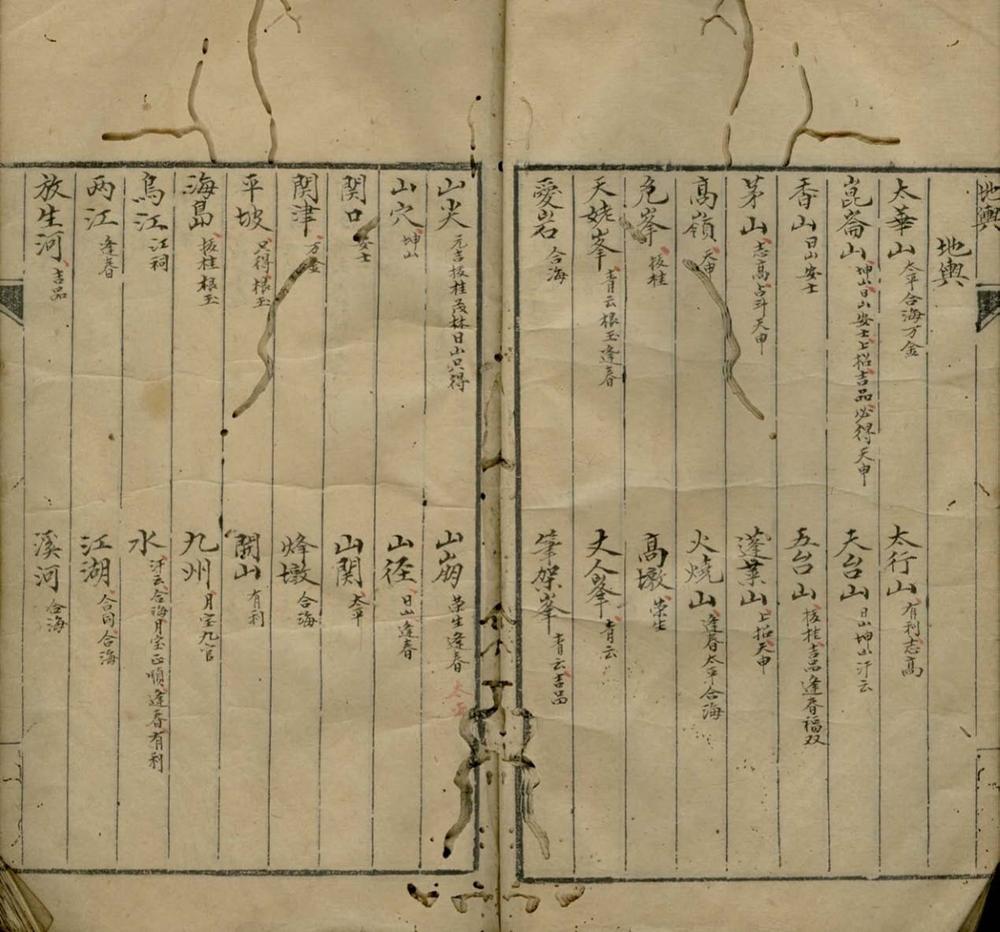 地輿
地輿
太華山 太平 合海 万金
太行山 有利 志高
崑崙山 坤山 日山 安士 上招 吉品 必得 天申
天台山 日山 坤山 汗云
香山 日山 安士
五台山 拔桂 吉品 逢春 福双
茅山 志高 占斗 天申
蓬莱山 上招 天申
高嶺 天申
火燒山 逢春 太平 合海
危峯 拔桂
高墩 荣生
天姥峯 青云 根玉 逢春
丈人峯 青云
愛岩 合海
筆架峯 青云 吉品
山尖 元吉 拔桂 茂林 日山 只得
山崩 荣生 逢春 太平
山穴 坤山
山径 日山 逢春
関口 安士
山関 太平
関津 万金
烽墩 合海
平坡 只得 根玉
開山 有利
海島 拔桂 根玉
九州 月宝 九官
烏江 江祠
水 汗云 合海 月宝 正順 逢春 有利
两江 逢春
江湖 合同 合海
放生河 吉品
溪河 合海